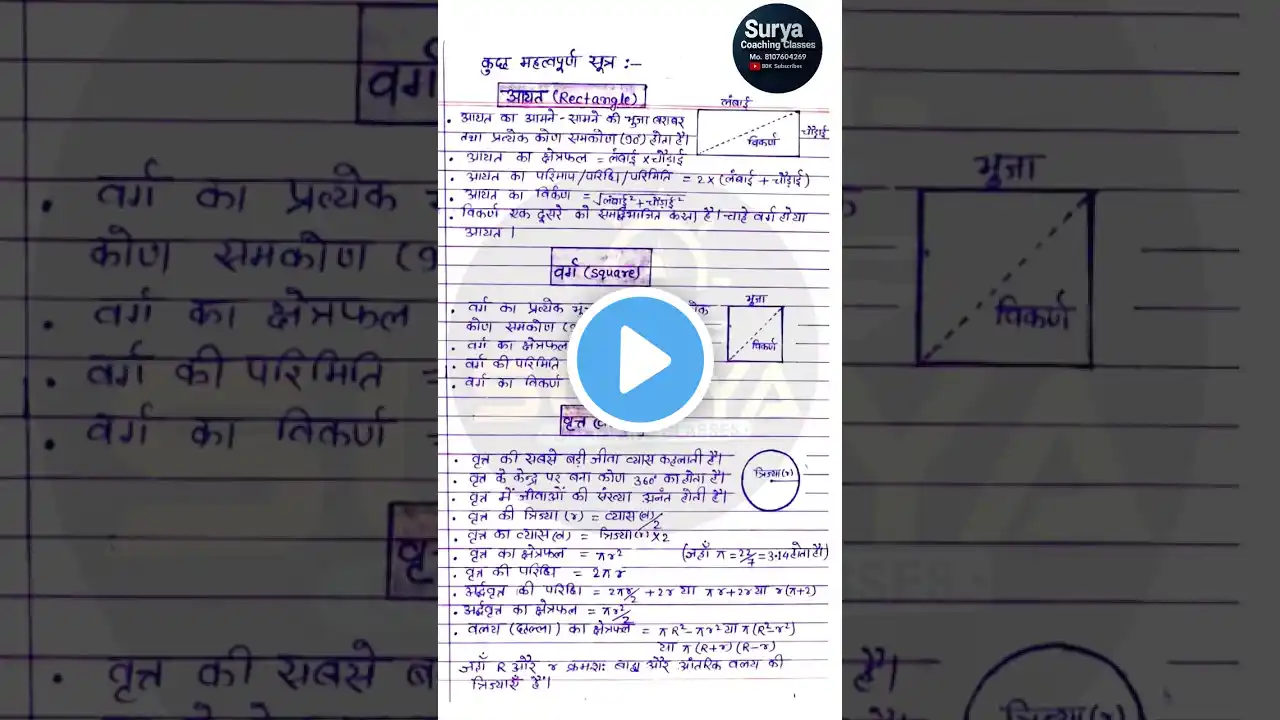 Surya
Coaching Classes
Mo. 8107604269
80K Subscribes
कुछ महत्वपूर्ण सूत्र :-
आयत (Rectangle)
लंबाई
चौड़ाई
विकर्ण
• आयत का आमने-सामने की भूजा बराबर
तथा प्रत्येक कोण समकोण (90°) होता है।
• आयत का क्षेत्रफल = लंबाई × चौड़ाई
• आयत का परिमाप/परिधि/परिमिति = 2 × (लंबाई + चौड़ाई)
• आयत का विर्कण = √लंबाई² + चौड़ाई²
• विकर्ण एक दूसरे को समद्विभाजित करता है। चाहे वर्ग हो या
आयत ।
वर्ग (square)
भूजा
विकर्ण
• वर्ग का प्रत्येक
कोण समकोण
• वर्ग का क्षेत्रफल
• वर्ग की परिमिति
• वर्ग का विकर्ण
वृत्त
त्रिज्या(r)
• वृत्त की सबसे बड़ी जीवा व्यास कहलाती है।
• वृत्त के केन्द्र पर बना कोण 360° का होता है।
• वृत्त में जीवाओं की संख्या अनंत होती है।
• वृत्त की त्रिज्या (r) = व्यास/2
• वृत्त का व्यास = त्रिज्या(r) × 2
• वृत्त का क्षेत्रफल = πr² (जहाँ π = 22/7 = 3.14 होता है।)
• वृत्त की परिधि = 2πr
• अर्द्धवृत्त की परिधि = 2πr/2 + 2r या πr+2r या r(π+2)
• अर्द्धवृत्त का क्षेत्रफल = πr²/2
• वलय (छल्ला) का क्षेत्रफल = πR² - πr² या π(R²-r²)
या π(R+r)(R-r)
जहाँ R और r क्रमशः बाह्य और आंतरिक वलय की
त्रिज्याएँ है।
वर्ग
• वर्ग का प्रत्येक
कोण समकोण
• वर्ग का क्षेत्रफल
• वर्ग की परिमिति =
• वर्ग का विकर्ण
• वृत्त की सबसे
भूजा
विकर्ण
है।
त्रिज्या(r)